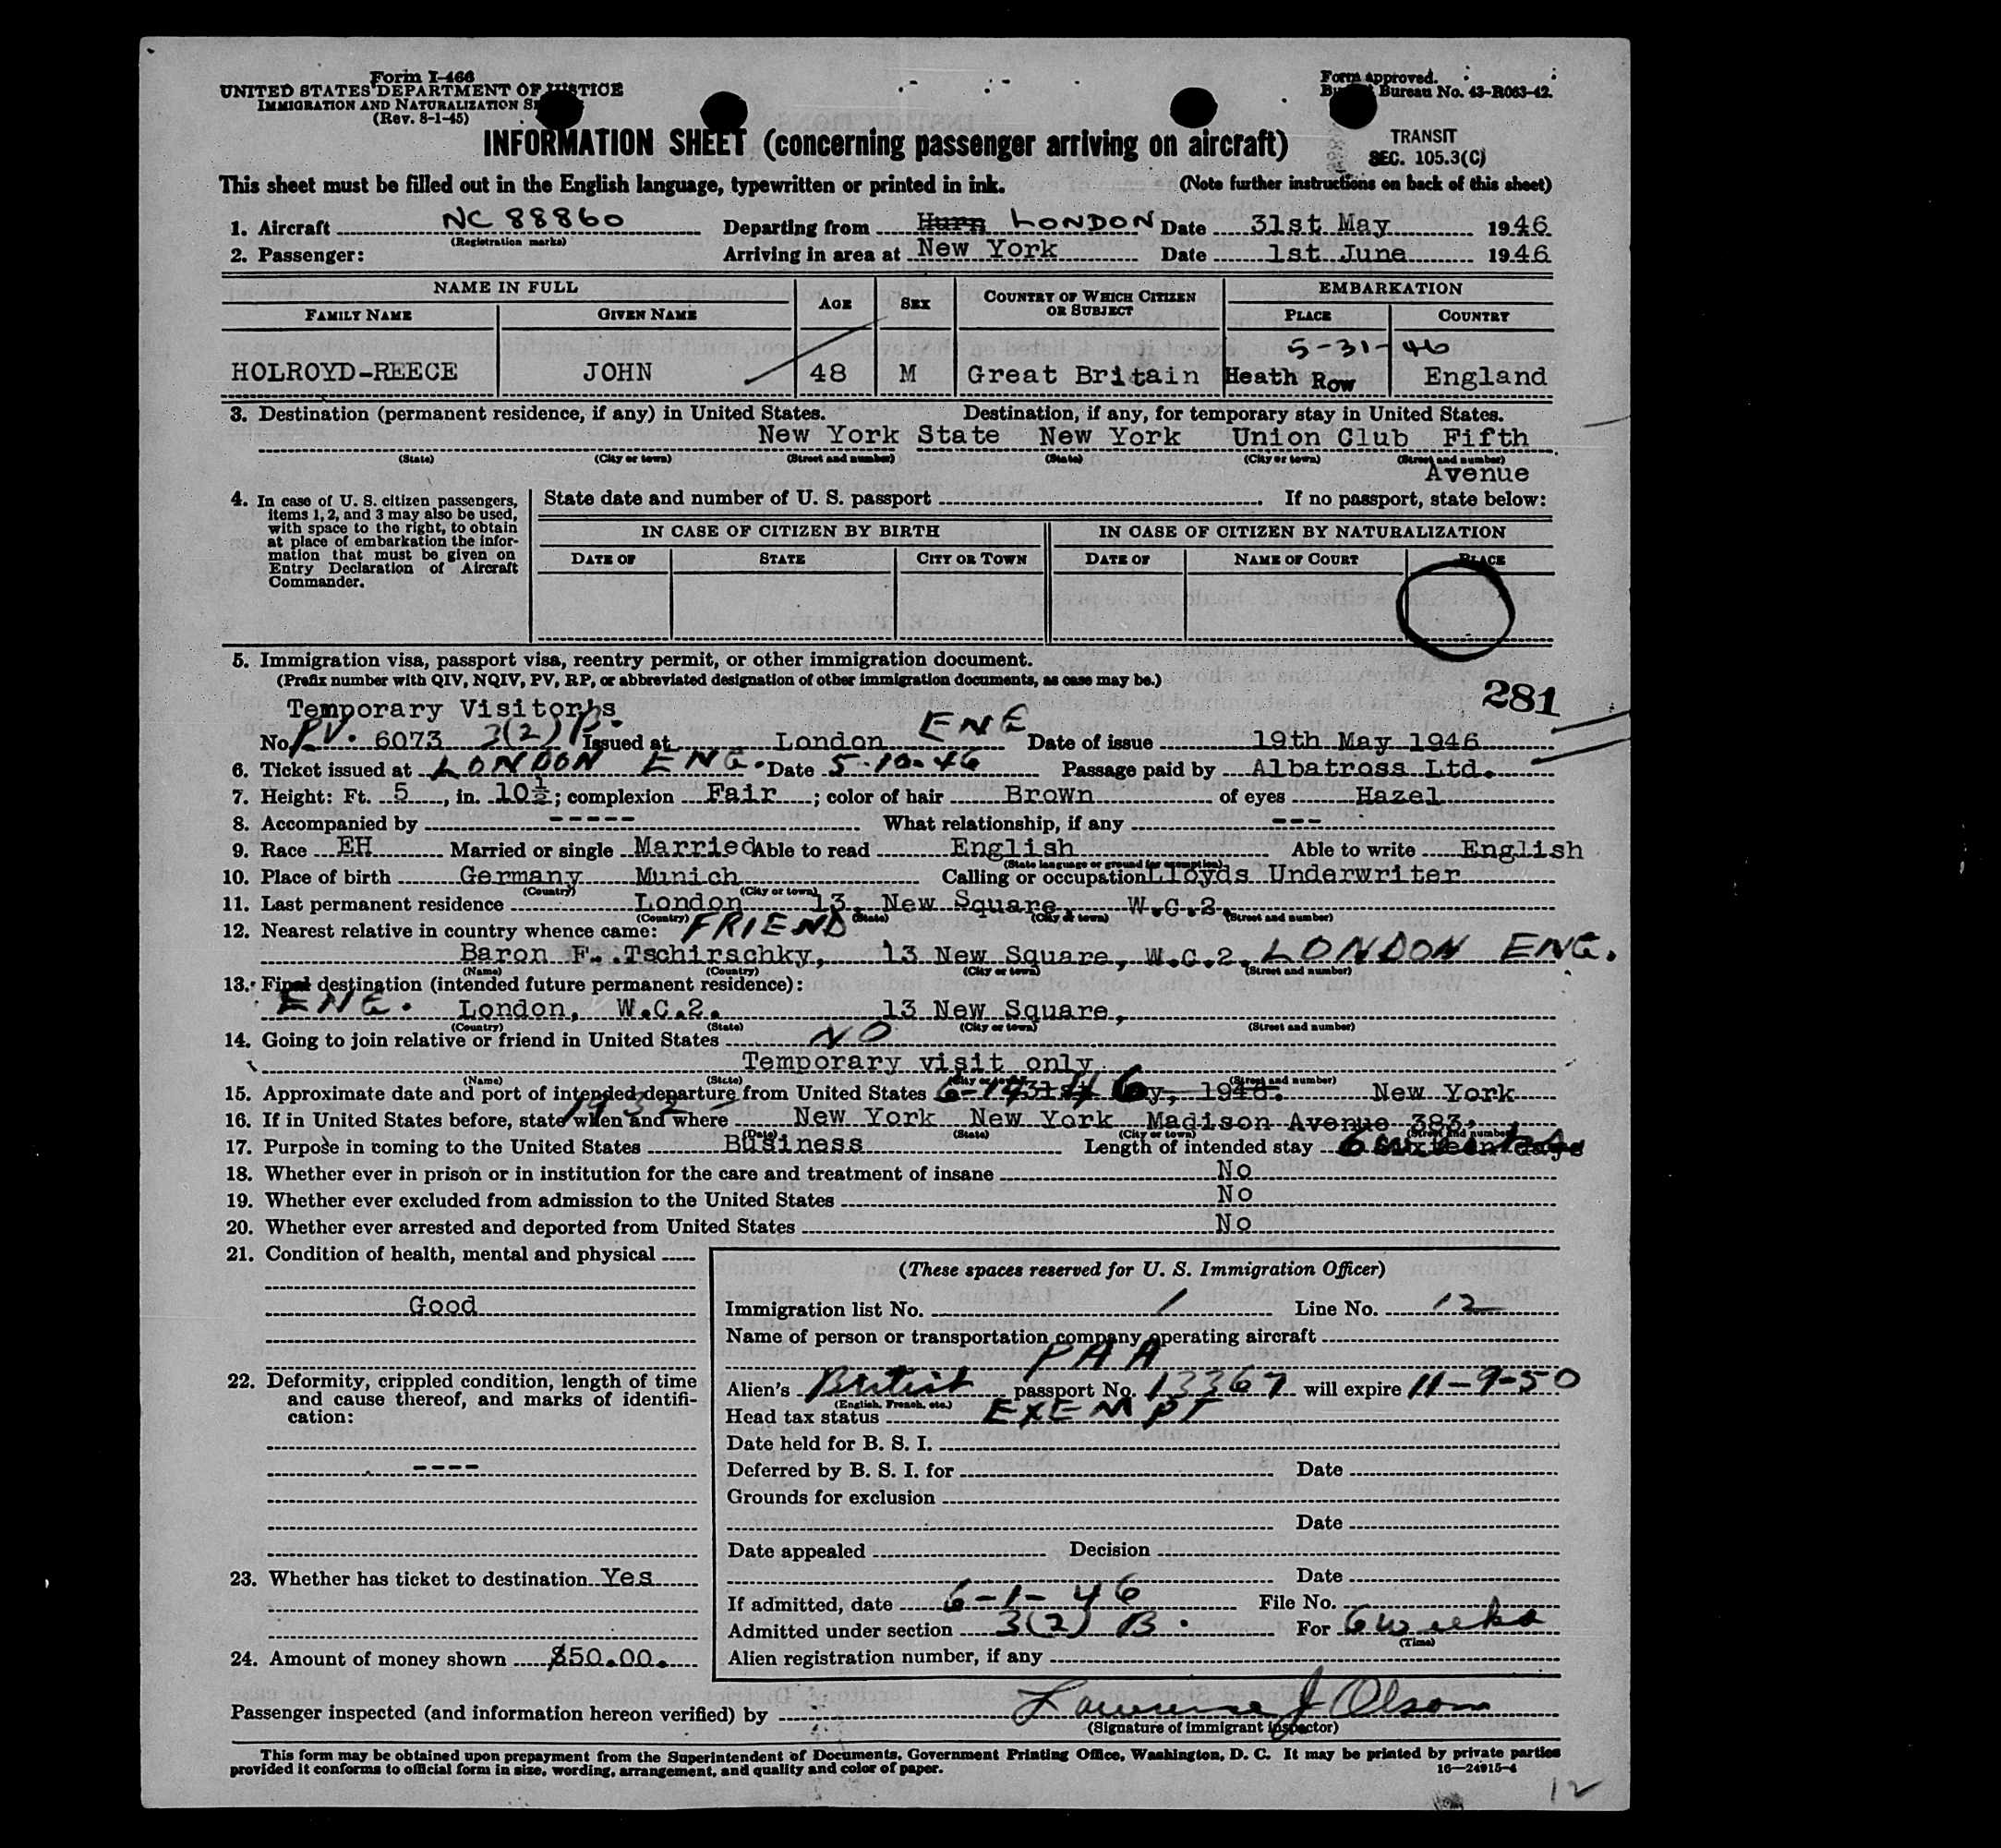 Form I-466
UNITED STATES DEPARTMENT OF JUSTICE
IMMIGRATION AND NATURALIZATION
(Rev. 8-1-45)
Form approved.
Bureau No. 43-R063-42.
INFORMATION SHEET (concerning passenger arriving on aircraft)
TRANSIT
SEC. 105.3(C)
This sheet must be filled out in the English language, typewritten or printed in ink. (Note further instructions on back of this sheet)
1. Aircraft NC 88860 Departing from Hurn LONDON Date 31st May 1946
(Registration marks)
2. Passenger: Arriving in area at New York Date 1st June 1946
NAME IN FULL AGE SEX COUNTRY OF WHICH CITIZEN OR SUBJECT EMBARKATION
FAMILY NAME GIVEN NAME PLACE COUNTRY
5-31-46
HOLROYD-REECE JOHN 48 M Great Britain Heath Row England
3. Destination (permanent residence, if any) in United States. Destination, if any, for temporary stay in United States.
New York State New York Union Club Fifth
(State) (City or town) (Street and number) (State) (City or town) (Street and number)
Avenue
4. In case of U. S. citizen passengers, items 1, 2, and 3 may also be used, with space to the right, to obtain at place of embarkation the information that must be given on Entry Declaration of Aircraft Commander.
State date and number of U. S. passport If no passport, state below:
IN CASE OF CITIZEN BY BIRTH IN CASE OF CITIZEN BY NATURALIZATION
DATE OF STATE CITY OR TOWN DATE OF NAME OF COURT PLACE
5. Immigration visa, passport visa, reentry permit, or other immigration document.
(Prefix number with QIV, NQIV, PV, RP, or abbreviated designation of other immigration documents, as case may be.)
281
Temporary Visitor
No. PV. 6073 3(2) B. Issued at London ENG Date of issue 19th May 1946
6. Ticket issued at LONDON ENG. Date 5-10-46 Passage paid by Albatross Ltd.
7. Height: Ft. 5, in. 10½; complexion Fair; color of hair Brown of eyes Hazel
8. Accompanied by ----- What relationship, if any ---
9. Race EH Married or single Married Able to read English Able to write English
(State language or ground for exemption)
10. Place of birth Germany Munich Calling or occupation Lloyds Underwriter
(Country) (City or town)
11. Last permanent residence London 13, New Square, W.C.2.
(Country) (State) (City or town) (Street and number)
12. Nearest relative in country whence came: FRIEND
Baron F. Tschirschky, 13 New Square, W.C.2. LONDON ENG.
(Name) (Country) (City or town) (Street and number)
13. Final destination (intended future permanent residence):
ENG. London, W.C.2. 13 New Square,
(Country) (State) (City or town) (Street and number)
14. Going to join relative or friend in United States NO
Temporary visit only
(Name) (State) (City or town) (Street and number)
15. Approximate date and port of intended departure from United States New York
16. If in United States before, state when and where 1932 - New York New York Madison Avenue 383.
(Date) (State) (City or town) (Street and number)
17. Purpose in coming to the United States Business Length of intended stay
18. Whether ever in prison or in institution for the care and treatment of insane No
19. Whether ever excluded from admission to the United States No
20. Whether ever arrested and deported from United States No
21. Condition of health, mental and physical
Good
22. Deformity, crippled condition, length of time and cause thereof, and marks of identification:
----
23. Whether has ticket to destination Yes
24. Amount of money shown $50.00.
(These spaces reserved for U. S. Immigration Officer)
Immigration list No. 1 Line No. 12
Name of person or transportation company operating aircraft
PAA
Alien's British passport No. 13367 will expire 11-9-50
(English, French, etc.)
Head tax status EXEMPT
Date held for B. S. I.
Deferred by B. S. I. for Date
Grounds for exclusion
Date
Date appealed Decision
Date
If admitted, date 6-1-46 File No.
Admitted under section 3(2) B. For 6 weeks
(Time)
Alien registration number, if any
Passenger inspected (and information hereon verified) by Lawrence J Olson
(Signature of immigrant inspector)
This form may be obtained upon prepayment from the Superintendent of Documents, Government Printing Office, Washington, D. C. It may be printed by private parties
provided it conforms to official form in size, wording, arrangement, and quality and color of paper. 16—24915-4
12